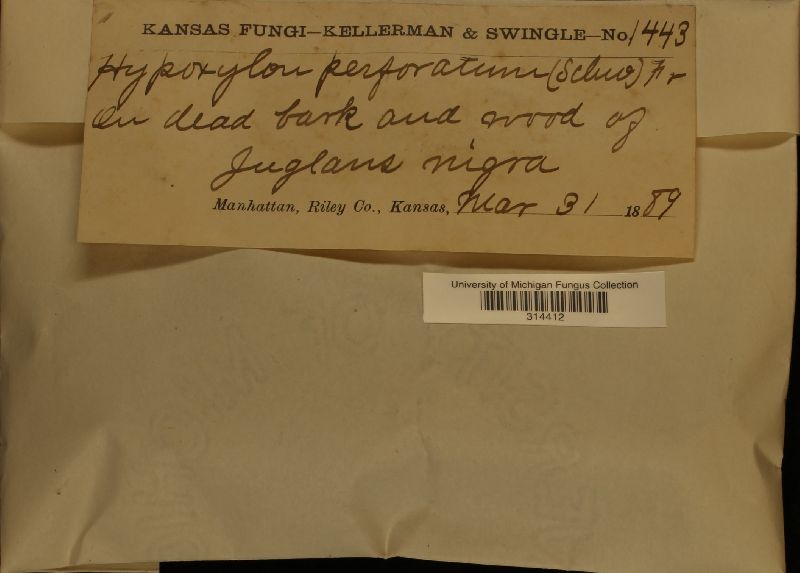 KANSAS FUNGI—KELLERMAN & SWINGLE—No. 1443
Hypoxylon perforatum (Schw) Fr
On dead bark and wood of
Juglans nigra
Manhattan, Riley Co., Kansas, Mar 31 1889
University of Michigan Fungus Collection
314412